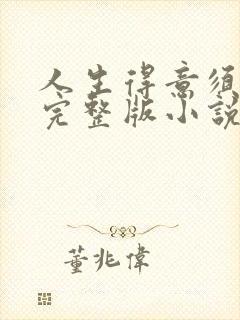 人生得意须
完整版小說
董兆偉